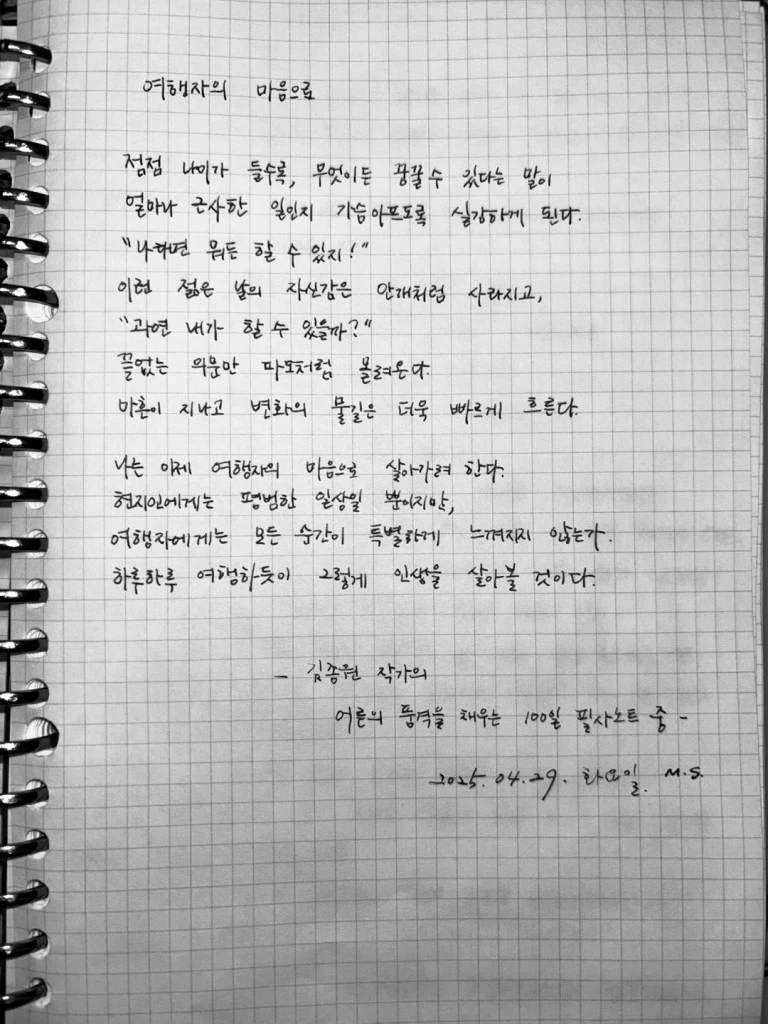 여행자의 마음으로
점점 나이가 들수록, 무엇이든 꿈꿀 수 있다는 말이
얼마나 근사한 일인지 가슴아프도록 실감하게 된다.
"나라면 뭐든 할 수 있지!"
이런 젊은 날의 자신감은 안개처럼 사라지고,
"과연 내가 할 수 있을까?"
끝없는 의문만 파도처럼 몰려온다.
마흔이 지나고 변화의 물길은 더욱 빠르게 흐른다.
나는 이제 여행자의 마음으로 살아가려 한다.
현지인에게는 평범한 일상일 뿐이지만,
여행자에게는 모든 순간이 특별하게 느껴지지 않는가.
하루하루 여행하듯이 그렇게 인생을 살아볼 것이다.
- 김종원 작가의
어른의 품격을 채우는 100일 필사노트 중 -
2025. 04. 29. 화요일. M.S.